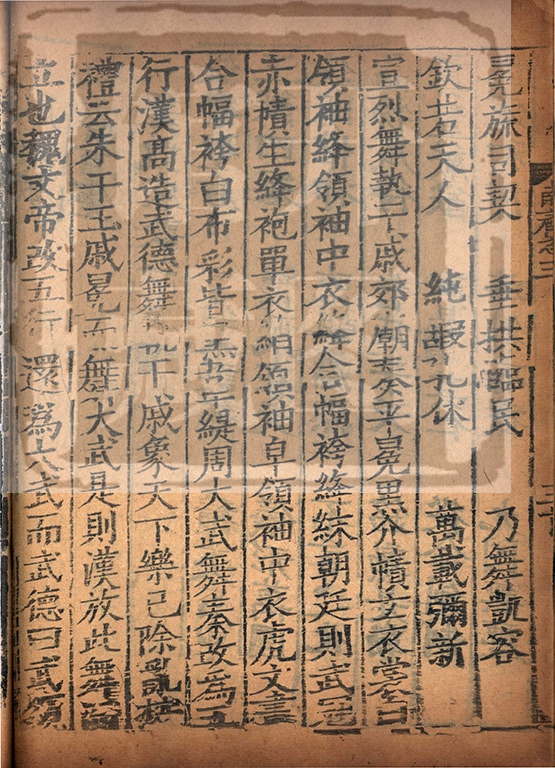 冕旒司契　垂拱臨民　乃舞凱容
欽若天人　純嘏孔休　萬載彌新
宣烈舞執干戚郊廟奏平冕黑介幘玄衣裳白
領袖絳領袖中衣絳合幅袴絳袜朝廷則武冠
赤幘生絳袍單衣絹領袖皁領袖中衣虎文畫
合幅袴白布皆黑韋緹周大武舞秦改爲五
行漢髙造武德舞執干戚象天下樂已除亂按
禮云朱干玉戚冕而舞大武是則漢放此舞
立也魏文帝改五行還爲大武而武德曰武頌